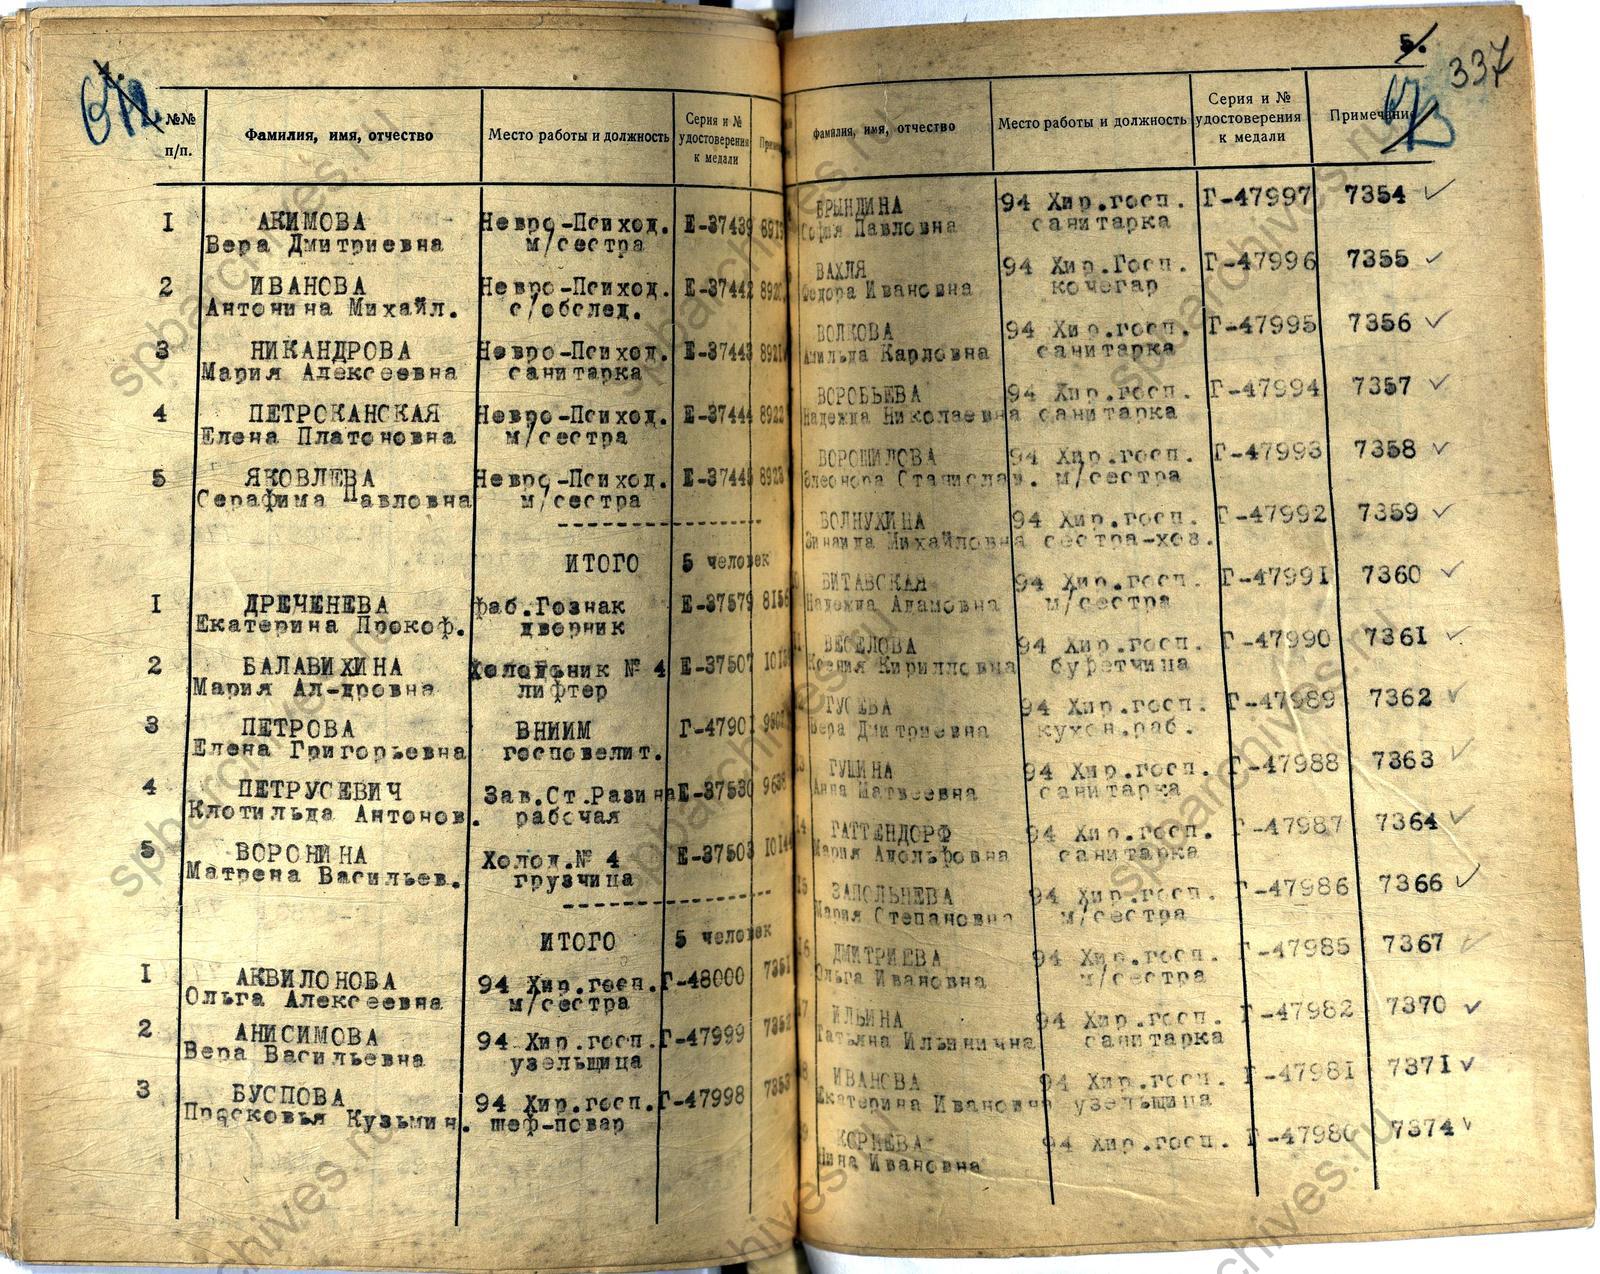 №№ п/п. Фамилия, имя, отчество Место работы и должность Серия и № удостоверения к медали
I АКИМОВА Невро-Психод. Е-37439
Вера Дмитриевна м/сестра
2 ИВАНОВА Невро-Психод. Е-37442
Антонина Михайл. с/обслед.
3 НИКАНДРОВА Невро-Психод. Е-37443
Мария Алексеевна санитарка
4 ПЕТРОКАНСКАЯ Невро-Психод. Е-37444 8922
Елена Платоновна м/сестра
5 ЯКОВЛЕВА Невро-Психод. Е-37445 8923
Серафима Павловна м/сестра
ИТОГО 5 человек
I ДРЕЧЕНЕВА фаб.Гознак Е-37579 8156
Екатерина Прокоф. дворник
2 БАЛАВИХИНА Холодьник № 4 Е-37507
Мария Ал-дровна лифтер
3 ПЕТРОВА ВНИИМ Г-47901
Елена Григорьевна госповелит.
4 ПЕТРУСЕВИЧ Зав.Ст.Разина Е-37530
Клотильда Антонов. рабочая
5 ВОРОНИНА Холод.№ 4 Е-37503
Матрена Васильев. грузчица
ИТОГО 5 человек
I АКВИЛОНОВА 94 Хир.госп. Г-48000 7351
Ольга Алексеевна м/сестра
2 АНИСИМОВА 94 Хир.госп. Г-47999 7352
Вера Васильевна узельщица
3 БУСПОВА 94 Хир.госп. Г-47998 7353
Прасковья Кузьмин. шеф-повар
5.
337
Фамилия, имя, отчество Место работы и должность Серия и № удостоверения к медали Примечание
БРЫНДИНА 94 Хир.госп. Г-47997 7354
Софья Павловна санитарка
ВАХЛЯ 94 Хир.Госп. Г-47996 7355
Федора Ивановна кочегар
ВОЛКОВА 94 Хир.госп. Г-47995 7356
Амильда Карловна санитарка
ВОРОБЬЕВА 94 Хир.госп. Г-47994 7357
Надежда Николаевна санитарка
ВОРОШИЛОВА 94 Хир.госп. Г-47993 7358
Элеонора Станислав. м/сестра
ВОЛНУХИНА 94 Хир.госп. Г-47992 7359
Зинаида Михайловна сестра-хоз.
ВИТАВСКАЯ 94 Хир.госп. Г-47991 7360
Надежда Адамовна м/сестра
ВЕСЕЛОВА 94 Хир.госп. Г-47990 7361
Ксения Кирилловна буфетчица
ГУСЕВА 94 Хир.госп. Г-47989 7362
Вера Дмитриевна кухон.раб.
ГУЩИНА 94 Хир.госп. Г-47988 7363
Анна Матвеевна санитарка
ГАТТЕНДОРФ 94 Хир.госп. Г-47987 7364
Мария Адольфовна санитарка
ЗАПОЛЬНЕВА 94 Хир.госп. Г-47986 7366
Мария Степановна м/сестра
ДМИТРИЕВА 94 Хир.госп. Г-47985 7367
Ольга Ивановна м/сестра
ИЛЬИНА 94 Хир.госп. Г-47982 7370
Татьяна Ильинична санитарка
ИВАНОВА 94 Хир.госп. Г-47981 7371
Екатерина Ивановна узельщица
КОРНЕВА 94 Хир.госп. Г-47980 7374
Нина Ивановна
spbarchives.ru